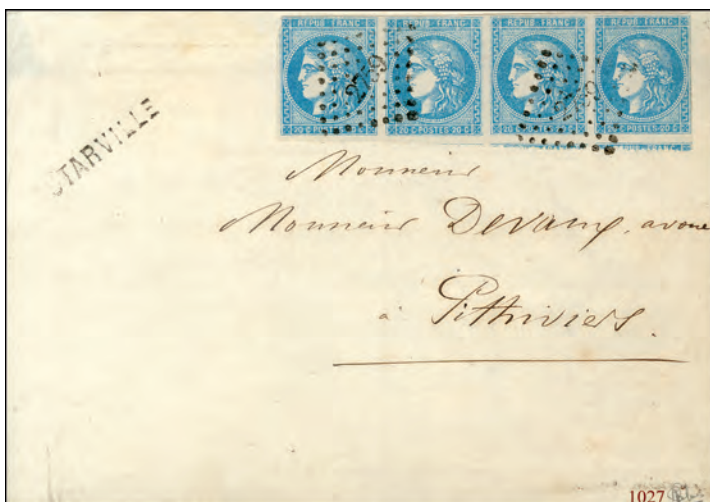 REPUB FRANC REPUB FRANC REPUB FRANC REPUB FRANC
20 C POSTES 20 C 20 C POSTES 20 C 20 C POSTES 20 C 20 C POSTES 20 C
OTARVILLE
Monsieur
Monsieur Devaux, avoué
à Pithiviers.
1027